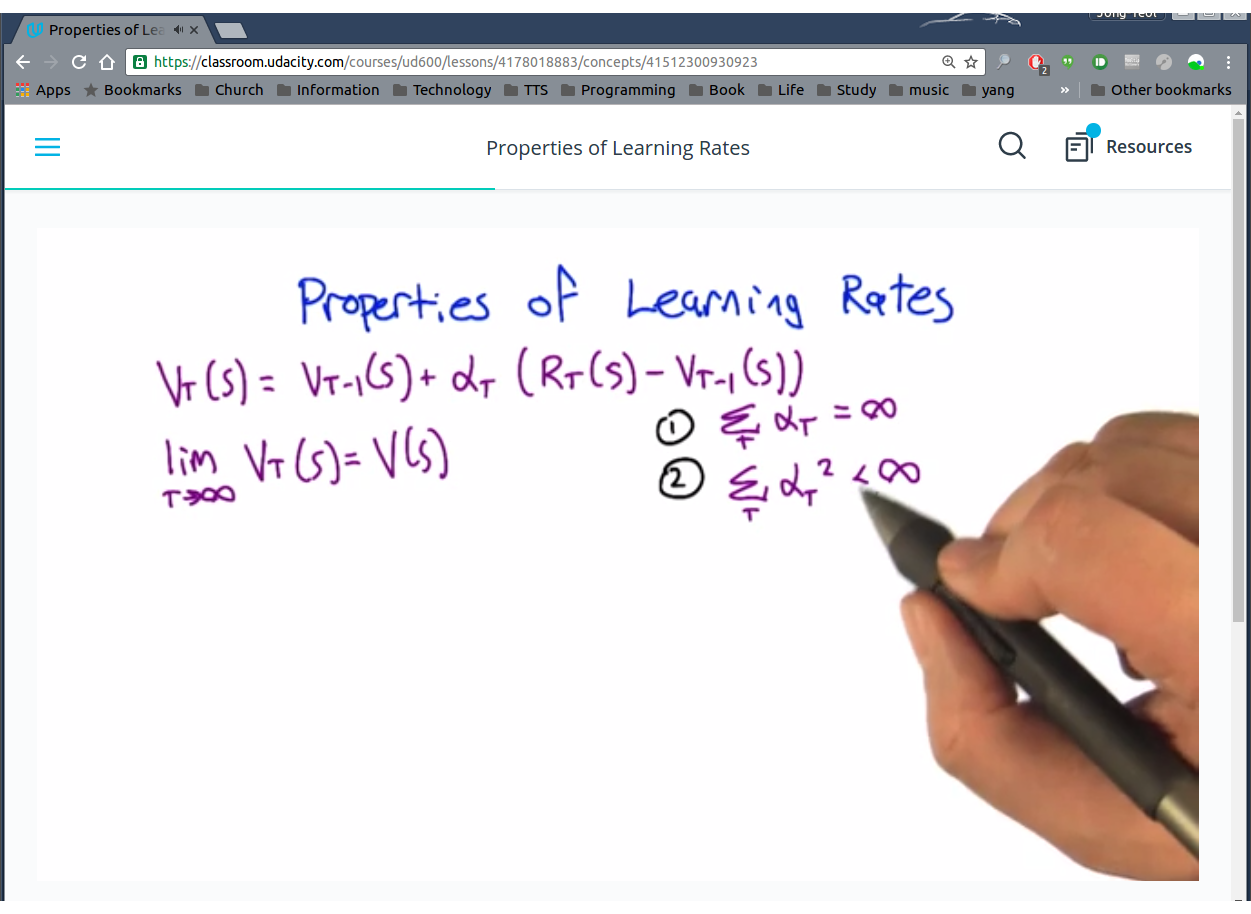 Properties of Lea
Jong Yeol
https://classroom.udacity.com/courses/ud600/lessons/4178018883/concepts/41512300930923
2
Apps Bookmarks Church Information Technology TTS Programming Book Life Study music yang » Other bookmarks
Properties of Learning Rates
Resources
Properties of Learning Rates
V_T(s) = V_{T-1}(s) + α_T (R_T(s) - V_{T-1}(s))
① Σ_T α_T = ∞
lim_{T→∞} V_T(s) = V(s)
② Σ_T α_T² < ∞